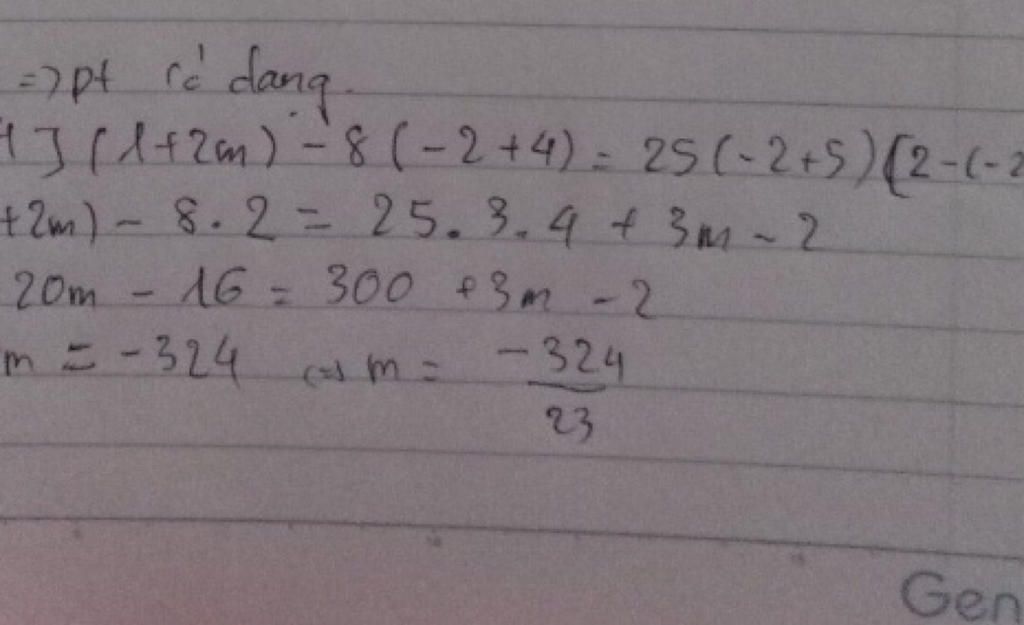 => pt có dạng.
1](1+2m) - 8(-2+4) = 25(-2+5)[2-(-2
+2m) - 8.2 = 25.3.4 + 3m - 2
20m - 16 = 300 + 3m - 2
m = -324 <=> m = -324/23
Gen